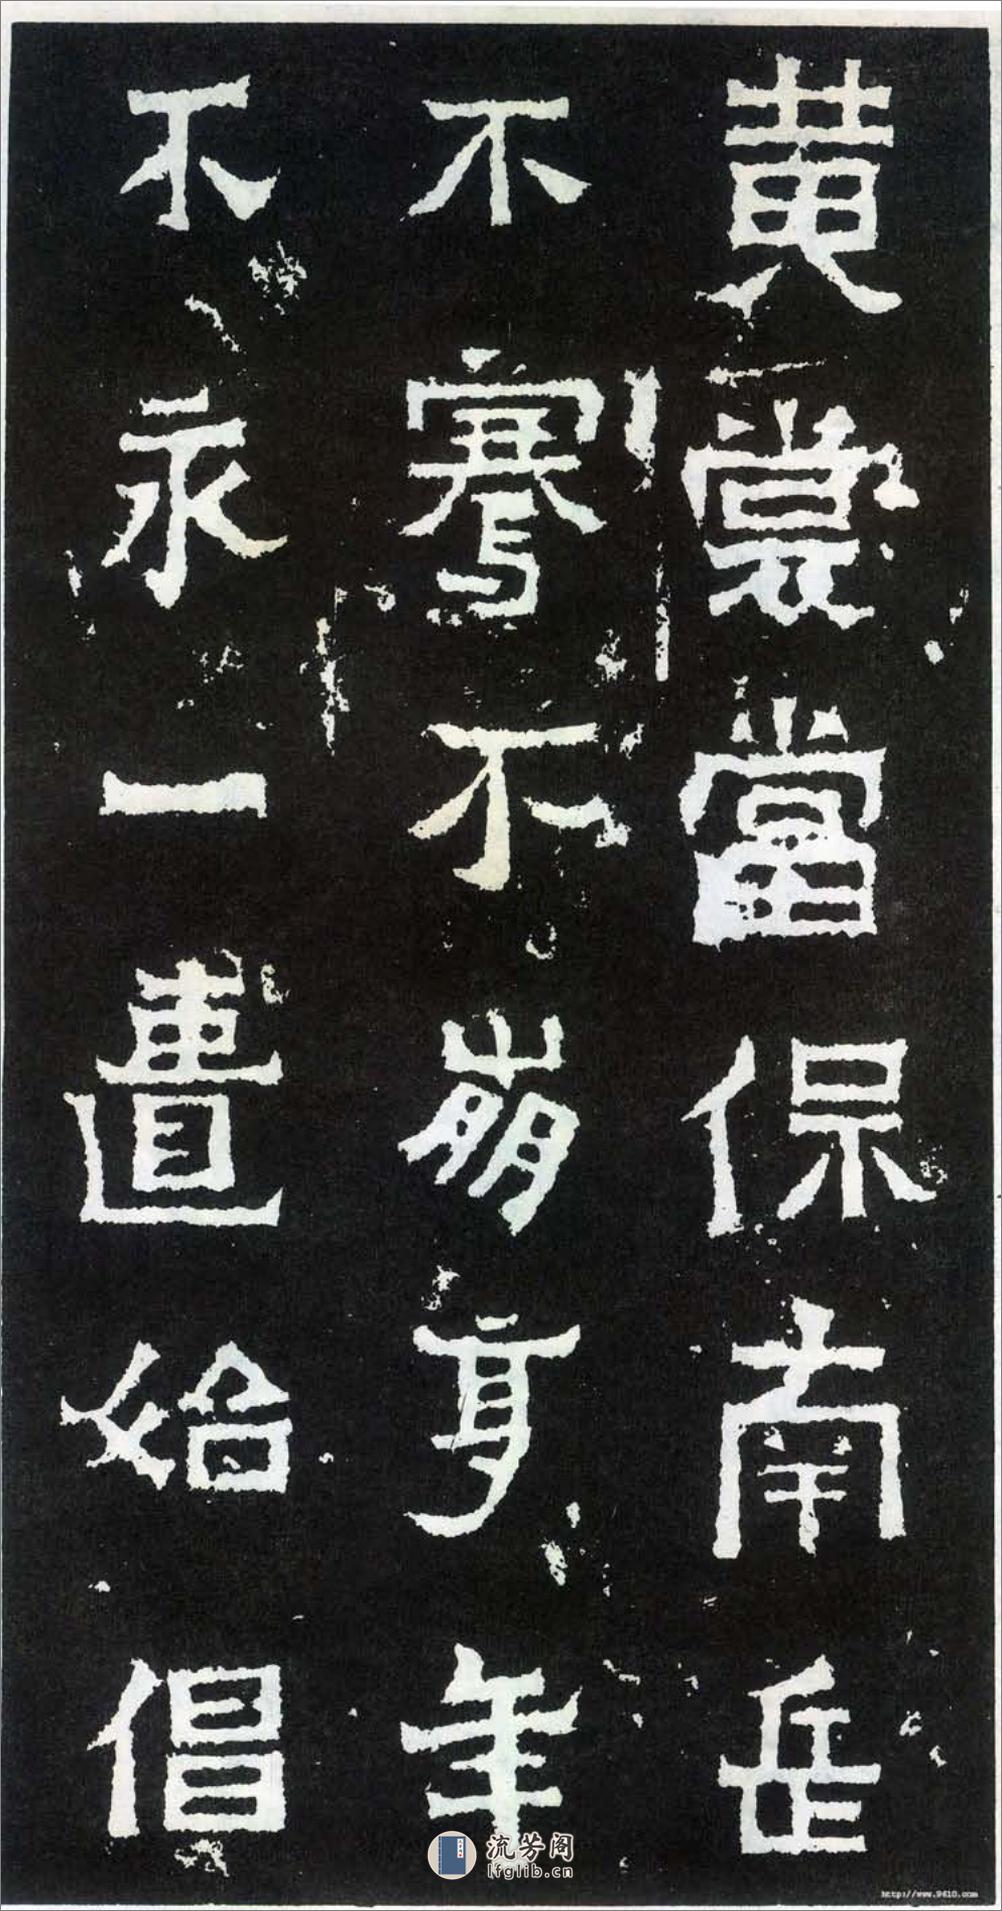 黃裳當保南岳
不騫不崩享年
不永一匱始倡
流芳阁
lfglib.cn
http://www.9610.com